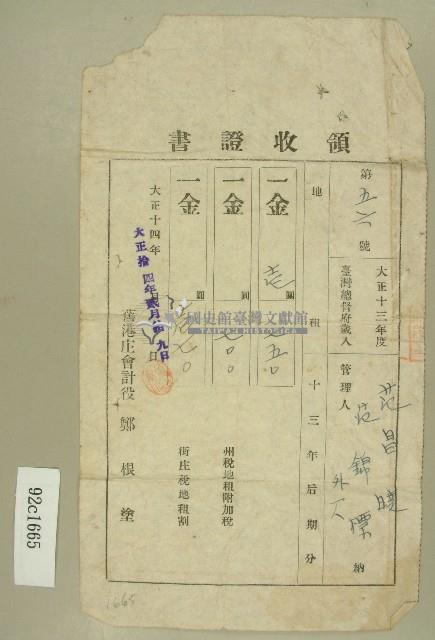 領收證書
第五六號
大正十三年度
臺灣總督府歲入
管理人
范昌
范錦標
外一人
納
地租 十三年后期分
一金 壱圓 五〇
一金 圓 七〇〇 州稅地租附加稅
一金 圓 七〇 街庄稅地租割
大正十四年 月 日
大正拾四年貳月 九日
舊港庄會計役 鄭根塗
國史館臺灣文獻館
TAIWAN HISTORICA
92c1665
1665